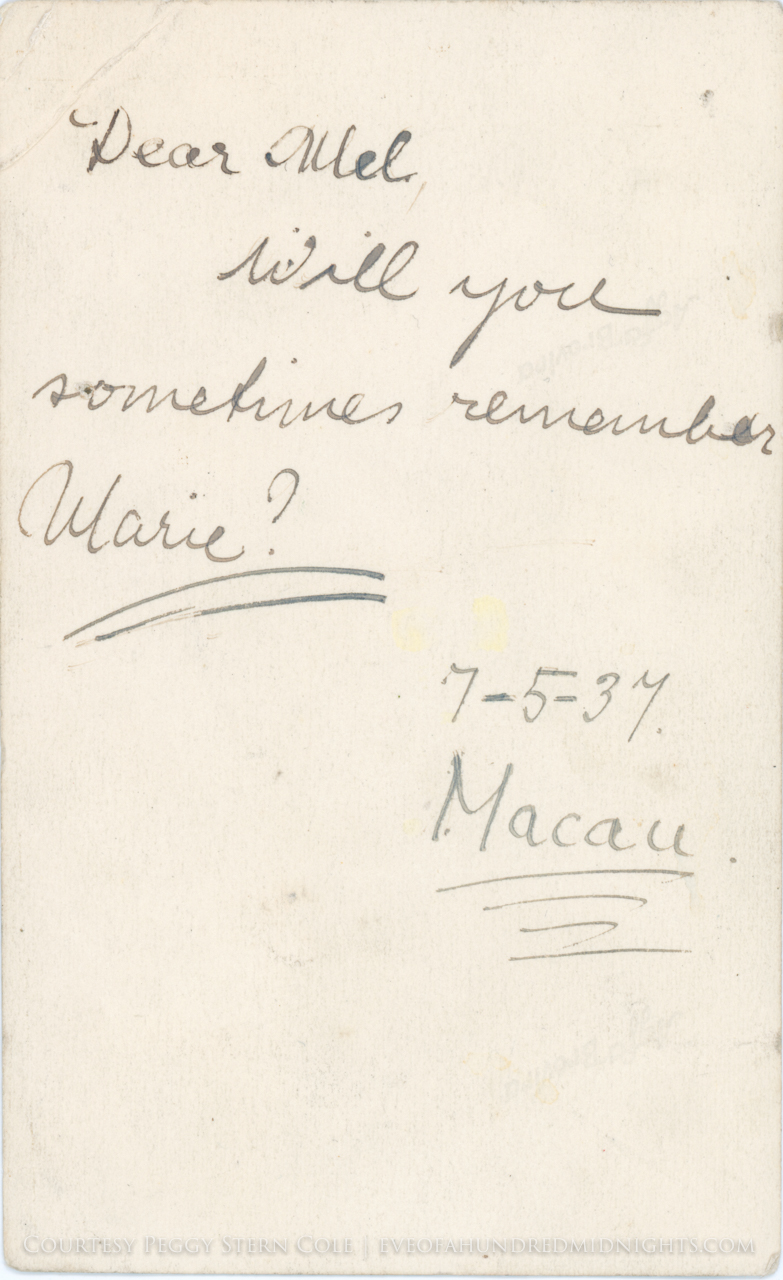 Dear Mel,
Will you
sometimes remember
Marie?
7-5-37.
Macau.
COURTESY PEGGY STERN COLE | EVEOFAHUNDREDMIDNIGHTS.COM